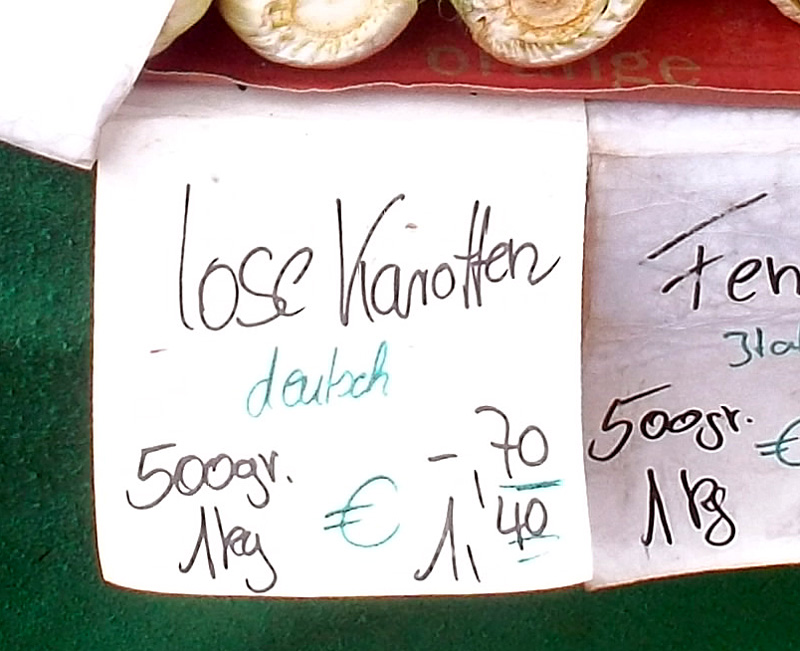 orange
lose Karotten
deutsch
500gr. -,70
1kg € 1,40
Fen
Ital
500gr.
1kg €